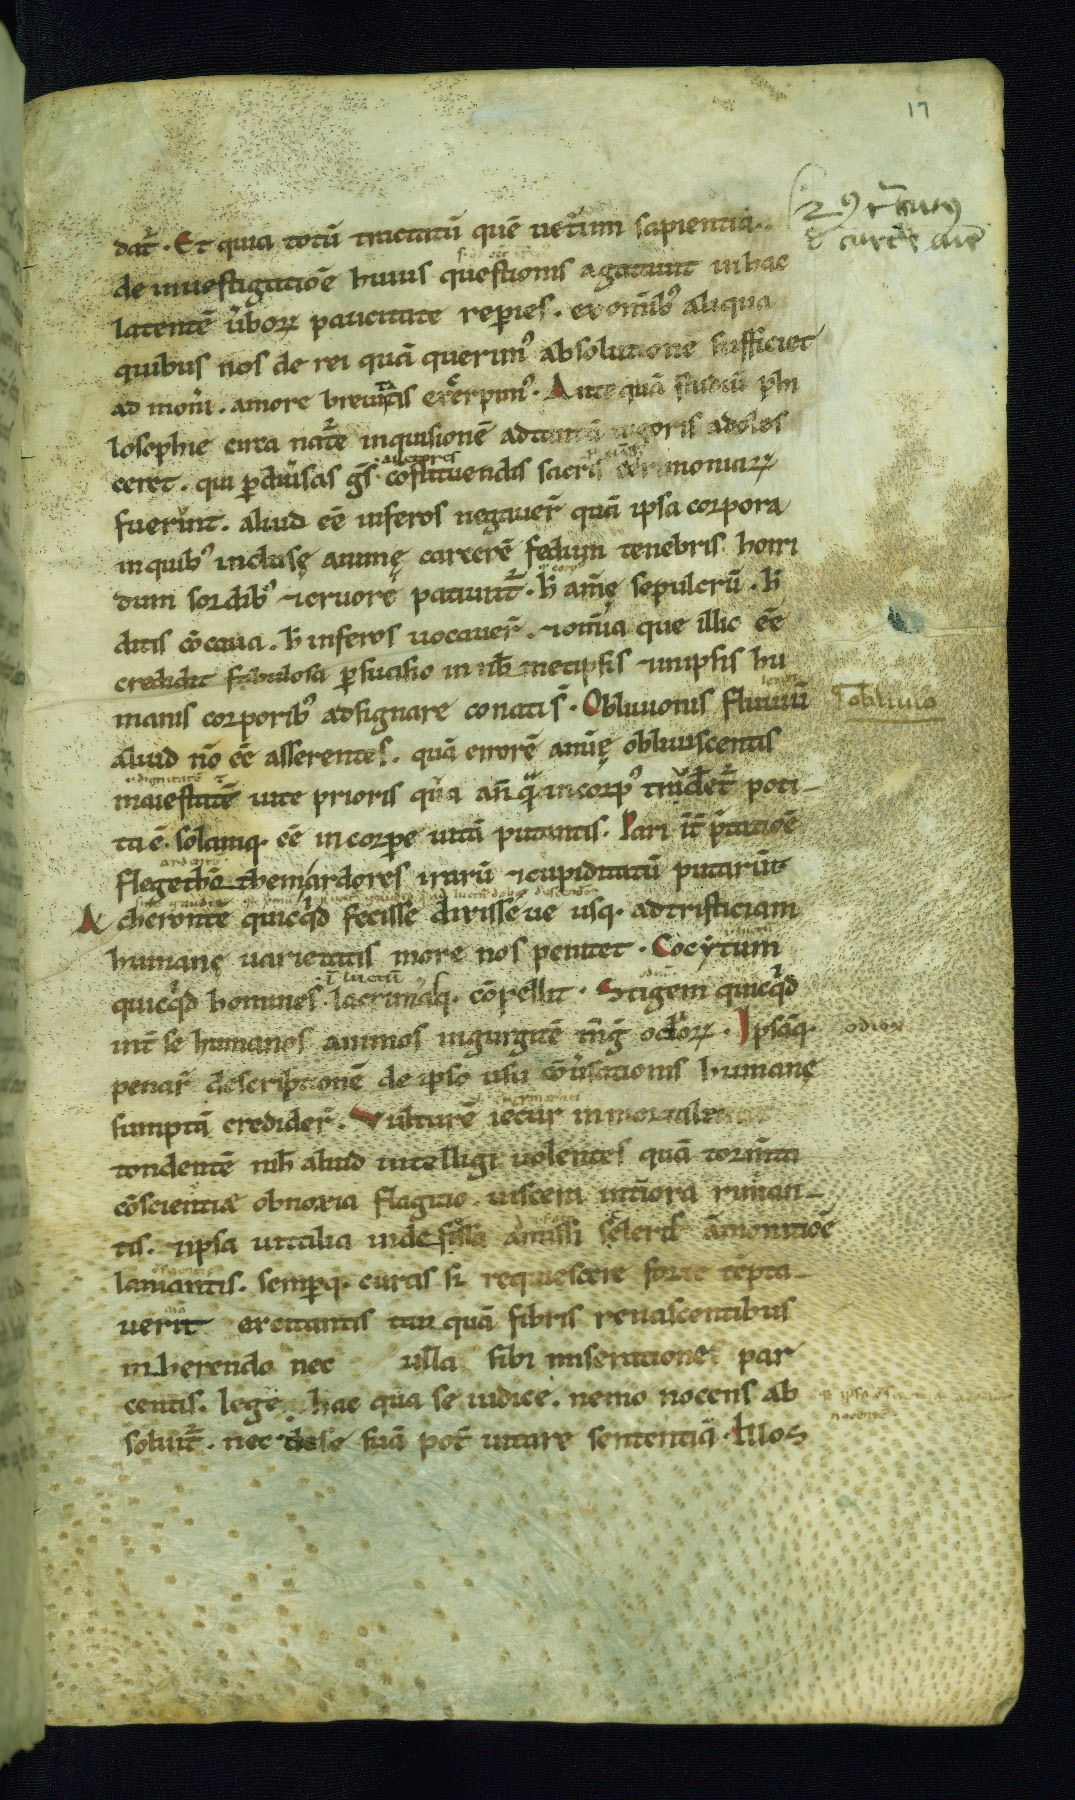 17
dat̄. Et quia totū tractatū quē uet̄um sapientia
de inuestigatiōe huius questionis agitauit in hac
latentē ūboꝝ paucitate repperies. ex omīb; aliqua
quibus nos de rei quā querim⁹ absolutione sufficiet
ad moñi. amore breuitatis excerpim⁹. Ante quā studiū phi
losophie circa nat̄e inquisionē ad tantū uigoris adoles
ceret. qui p diūsas gēs auctores cōstituendis sacris cerimoniaꝝ
fuerunt. aliud eē inferos negauer̄ quā ipsa corpora
in quib⁹ inclusę animę carcerē fedum tenebris horri
dum sordib⁹ ⁊ cruore patiunt̄. h̄ animę sepulcrū. h̄
ditis cōcaua. h̄ inferos uocauer̄. ⁊ omīa que illic eē
credidit fabulosa psuasio in nob̄ metipsis ⁊ in ipsis hu
manis corporib⁹ adsignare conati s̄. Obliuionis fluuiū
aliud nō eē asserentes. quā errorē animę obliuiscentis
maiestatē uite prioris qua an̄ quā in corp⁹ trudet̄ poti-
ta ē. solamq. eē in corpe uitā putantis. Pari īt̄ p̄tatiōe
flegethōthem ardores iraꝝ ⁊ cupiditatū putarūt
Acherontē quicqd fecisse dixisse ue usq. ad tristiciam
humanę uarietatis more nos penitet. Cocytum
quicqd homines ī luctū lacrimasq. cōpellit. Stigem quicqd
int̄ se humanos animos in gurgitē m̄g odioꝝ. Ipsāq.
penar̄ descriptionē de ipso usu cōūsationis humanę
sumptā credider̄. Vulturē iecur inmortale
tondentē nih̄ aliud intelligi uolentes quā tormīta
cōscientiæ obnoxia flagitio uiscera int̄iora riman-
tis. ⁊ ipsa uitalia indefessa āmissi sceleris āmonitiōe
laniantis. sempq. curas si requiescere forte tēpta-
uerit excitantis tan quā fibris renascentibus
inherendo nec ulla sibi miseratione par
centis. lege hac qua se iudice. nemo nocens ab
soluit̄. nec de se suā pot̄ uitare sententiā. Illos
obliuio
odium